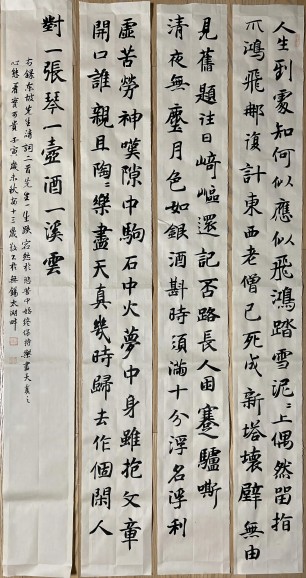 人生到處知何似應似飛鴻踏雪泥〻上偶然留指
爪鴻飛那復計東西老僧已死成新塔壞壁無由
見舊題往日崎嶇還記否路長人困蹇驢嘶
清夜無塵月色如銀酒斟時須滿十分浮名浮利
虛苦勞神嘆隙中駒石中火夢中身雖抱文章
開口誰親且陶〻樂盡天真幾時歸去作個閑人
對一張琴一壺酒一溪雲
右錄東坡先生詩詞二首先生一生跌宕然於悲苦中始終保持樂盡天真之
心態着實可貴壬寅歲末秋十三歲於無錫太湖畔